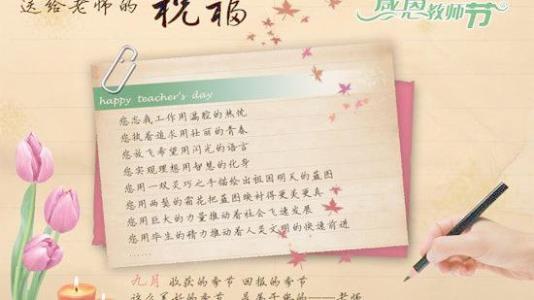 送给老师的 祝福
感恩教师节
happy teacher's day
您忘我工作用满腔的热忱
您执着追求用壮丽的青春
您放飞希望用闪光的语言
您实现理想用智慧的化身
您用一双灵巧之手描绘出祖国明天的蓝图
您用两鬓的霜花把蓝图焕衬得更美更真
您用巨大的力量推动着社会飞速发展
您用毕生的精力推动着人类文明的快速前进
九月 收获的季节 回报的季节
这么美好的季节 是属于您的——老师